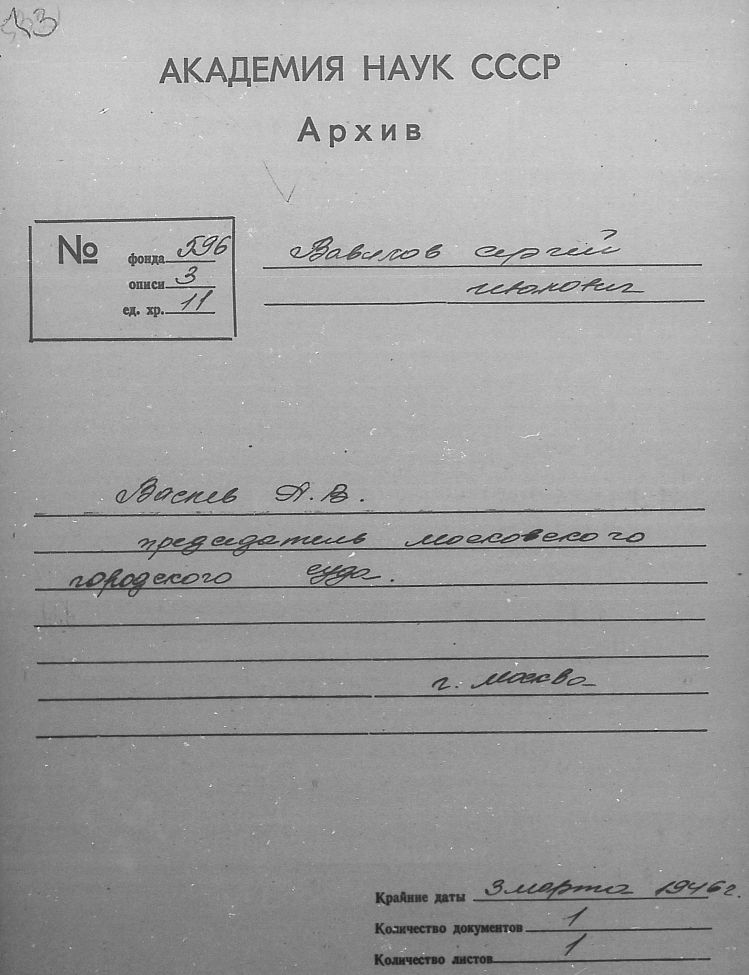 АКАДЕМИЯ НАУК СССР
Архив
№
фонда 596
описи 3
ед. хр. 11
Вавилов Сергей
Иванович
Васнев А.В.
председатель московского
городского суда.
г. Москва
Крайние даты 3 марта 1946 г.
Количество документов 1
Количество листов 1